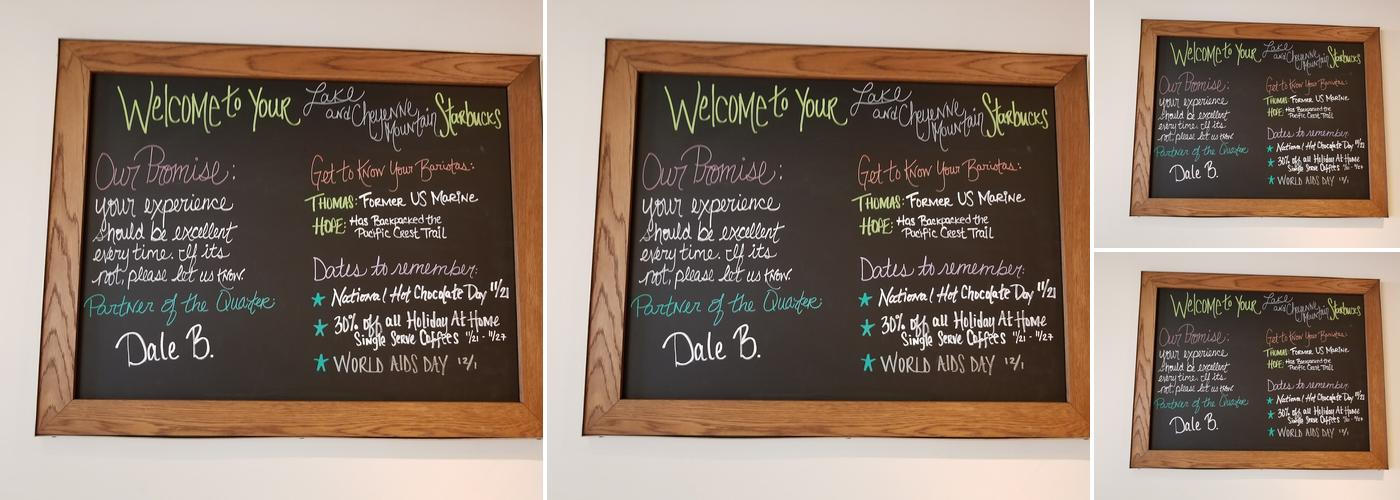 Welcome to Your Lake and Cheyenne Mountain Starbucks
Our Promise:
your experience
should be excellent
every time. If its
not, please let us know.
Partner of the Quarter:
Dale B.
Get to Know Your Baristas:
Thomas: Former US Marine
Hope: Has Backpacked the
Pacific Crest Trail
Dates to remember:
★ National Hot Chocolate Day 11/21
★ 30% off all Holiday At Home
Single Serve Coffees 11/21 - 11/27
★ WORLD AIDS DAY 12/1
Welcome to Your Lake and Cheyenne Mountain Starbucks
Our Promise:
your experience
should be excellent
every time. If its
not, please let us know.
Partner of the Quarter:
Dale B.
Get to Know Your Baristas:
Thomas: Former US Marine
Hope: Has Backpacked the
Pacific Crest Trail
Dates to remember:
★ National Hot Chocolate Day 11/21
★ 30% off all Holiday At Home
Single Serve Coffees 11/21 - 11/27
★ WORLD AIDS DAY 12/1
Welcome to Your Lake and Cheyenne Mountain Starbucks
Our Promise:
your experience
should be excellent
every time. If its
not, please let us know.
Partner of the Quarter:
Dale B.
Get to Know Your Baristas:
Thomas: Former US Marine
Hope: Has Backpacked the
Pacific Crest Trail
Dates to remember:
★ National Hot Chocolate Day 11/21
★ 30% off all Holiday At Home
Single Serve Coffees
★ WORLD AIDS DAY 12/1
Welcome to Your Lake and Cheyenne Mountain Starbucks
Our Promise:
your experience
should be excellent
every time. If its
not, please let us know.
Partner of the Quarter:
Dale B.
Get to Know Your Baristas:
Thomas: Former US Marine
Hope: Has Backpacked the
Pacific Crest Trail
Dates to remember:
★ National Hot Chocolate Day 11/21
★ 30% off all Holiday At Home
Single Serve Coffees
★ WORLD AIDS DAY 12/1